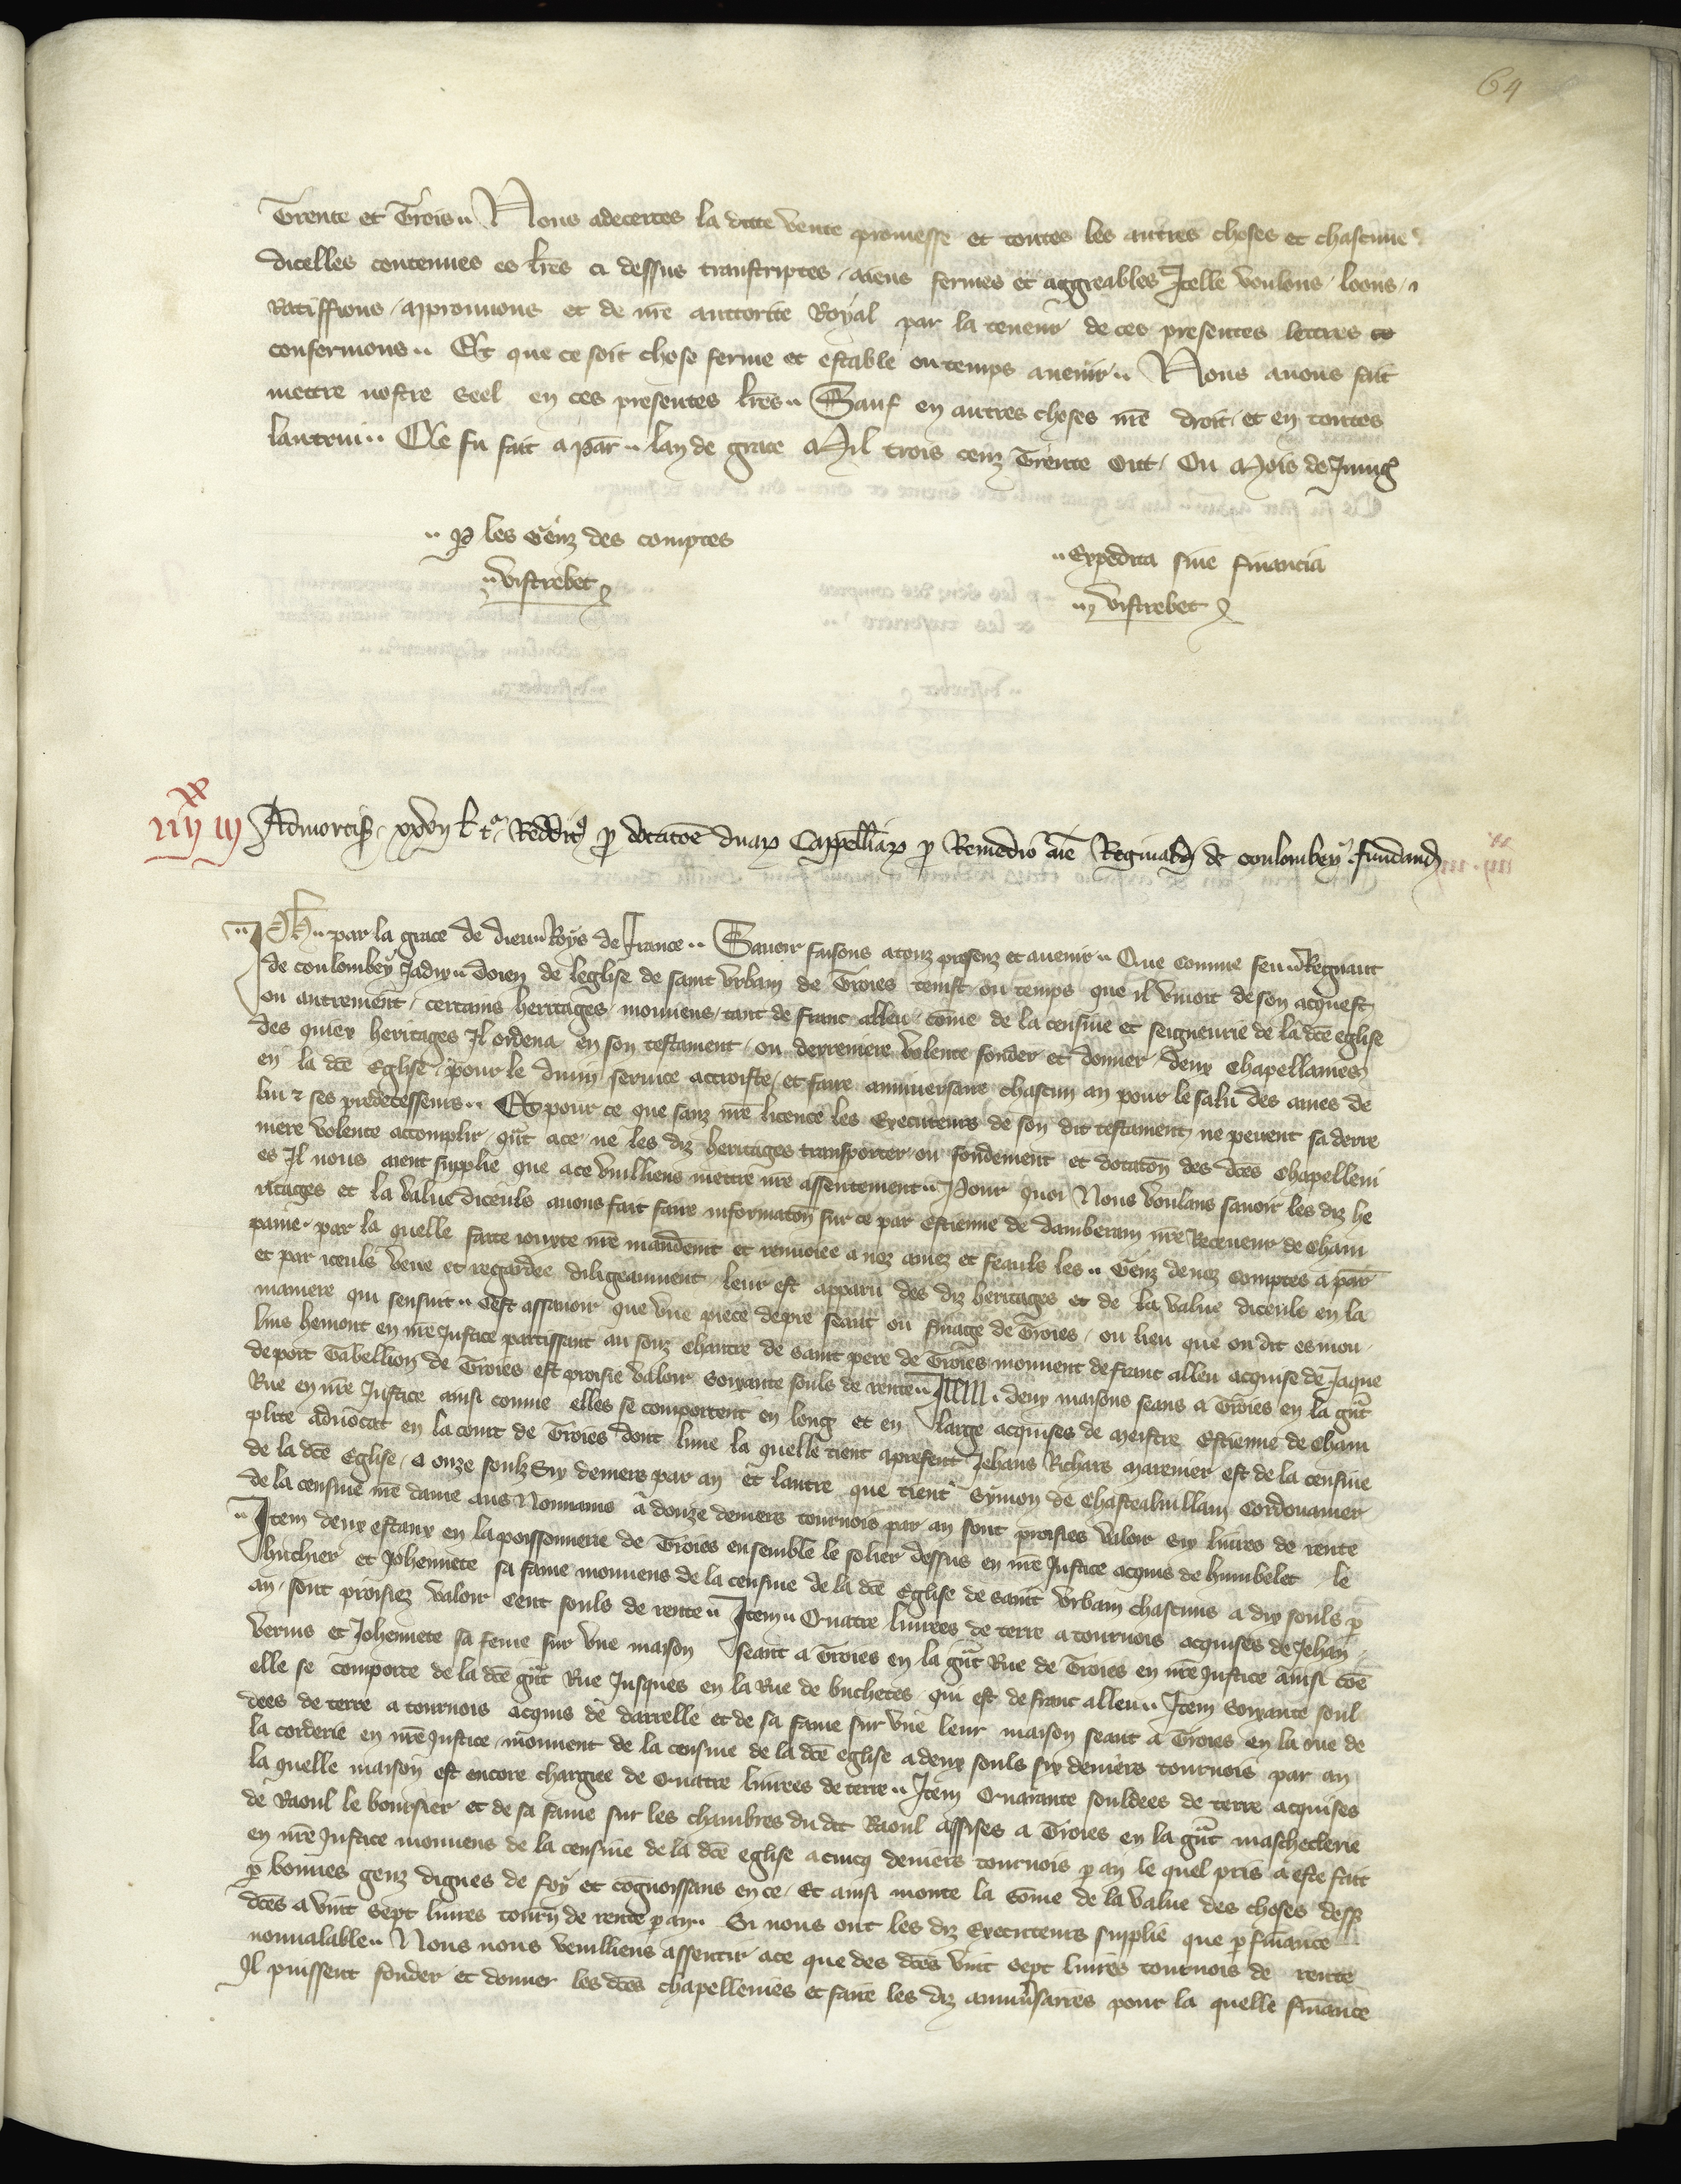 64
Trente et Trois .. Nous adecertes la dicte vente promesse et toutes les autres choses et chascune
dicelles contenues es lr̄es ci dessus transcriptes / aiens fermes et aggreables Icelle voulons / loons /
Ratiffions / aprouvons et de nr̄e auttorite Royal par la teneur de ces presentes lettres
confermons .. Et que ce soit chose ferme et estable ou temps avenir .. Nous avons fait
mettre nostre seel en ces presentes lr̄es .. Sauf en autres choses nr̄e droit / et en toutes
lautrui .. Ce fu fait a par̄ .. lan de grace Mil trois cenz Trente oit / Ou Mois de Juing
.. P les Genz des comptes
.. Vistrebet
.. Expedita sine financia
.. Vistrebet
xx
iiij iij Admortis̄ . xxvij l̄ t. Reddit9 ꝓ dotatōe duaꝝ Cappellīaꝝ ꝓ Remedio āie Reginaldi de coulombey fundand
.. Ph̄ .. par la grace de dieu Roys de France .. Savoir faisons a touz presenz et avenir .. Que comme feu .. Regnaut
de coulombey Jadix .. doien de leglise de saint Urbain de Troies tenist ou temps que il vivoit de son acquest
ou autrement / certains heritages / mouvens / tant de franc alleu / cōme de la censive et seigneurie de la dc̄e eglise
des quiex heritages Il ordena en son testament / ou derreniere volente fonder et donner / deux chapellanies
en la dc̄e Eglise / pour le divin service accroistre / et faire anniversaire chascun an pour le salu des ames de
lui ⁊ ses predecesseurs .. Et pour ce que sanz nr̄e licence les Executeurs de son dit testament ne pevent sa derre
niere volente accomplir / qūt a ce / ne les diz heritages transporter / ou fondement et dotatōn des dc̄es chapelleni
es Il nous aient supplie que a ce vuilliens mettre nr̄e assentement .. Pour quoi Nous voulans savoir les diz he
ritages et la value diceuls avons fait faire informatōn sur ce par Estienne de Damberain nr̄e Receveur de Cham
paine / par la quelle faite iouxte nr̄e mandemt et renvoiee a noz amez et feauls les .. Genz de noz comptes a par̄
et par iceuls veue et regardee diligeaument / leur est apparu des diz heritages et de la value diceuls en la
maniere qui sensuit .. Cest assavoir que vne piece de pre seant ou finage de Troies / ou lieu que on dit es mou
lins hemont en nr̄e Justice partissant au souz chantre de saint pere de Troies mouvent de franc alleu acquise de Jaque
de port Tabellion de Troies est proisie valoir soixante souls de rente .. Item . deux maisons seans a Troies en la gr̄t
Rue en nr̄e Justice ainsi comme elles se comportent en long et en large acquises de meistre Estienne de Cham
plite advocat en la court de Troies dont lune la quelle tient apresent Jehans Richars marenier est de la censive
de la dc̄e Eglise / a onze soulz Six deniers par an et lautre que tient Symon de Chasteabuillain Cordouanier
de la censive nr̄e dame aus Nonnains a douze deniers tournois par an sont proisies valoir six livres de rente
.. Item deux estaux en la poissonnerie de Troies ensemble le solier dessus en nr̄e Justice acquis de humbelet le
buchier et Johennete sa fame mouvens de la censive de la dc̄e Eglise de saint Urbain chascuns a dix souls ꝑ
an / sont proisiez valoir cent souls de rente .. Item .. Quatre livrees de terre a tournois acquises de Jehan
Verius et Johennete sa feme sur vne maison seant a Troies en la gr̄t Rue de Troies en nr̄e Justice ainsi cōe
elle se comporte de la dc̄e gr̄t Rue Jusques en la Rue de buchetes / qui est de franc alleu .. Item Soixante soul
dees de terre a tournois acquis de darrelle et de sa fame sur vne leur maison seant a Troies en la rue de
la corderie en nr̄e Justice mouvent de la censive de la dc̄e eglise a deux souls six deniers tournois par an
la quelle maison est encore chargiee de Quatre livrees de terre .. Item Quarante souldees de terre acquises
de Raoul le boursier et de sa fame sur les chambres du dit Raoul assises a Troies en la gr̄t maschecliere
en nr̄e Justice mouvens de la censive de la dc̄e eglise a cincq deniers tournois ꝑ an le quel pris a este fait
ꝑ bonnes genz dignes de foy et cognoissans en ce / Et ainsi monte la sōme de la value des choses dess̄
dc̄es a vint sept livres tourn̄ de rente ꝑ an .. Si nous ont les diz Executeurs supplie que ꝑ finance
nonvalable .. Nous nous veuilliens assentir / a ce que des dc̄es vint sept livres tournois de rente
Il puissent fonder et donner les dc̄es chapellenies et faire les diz anniv̄saires pour la quelle finance